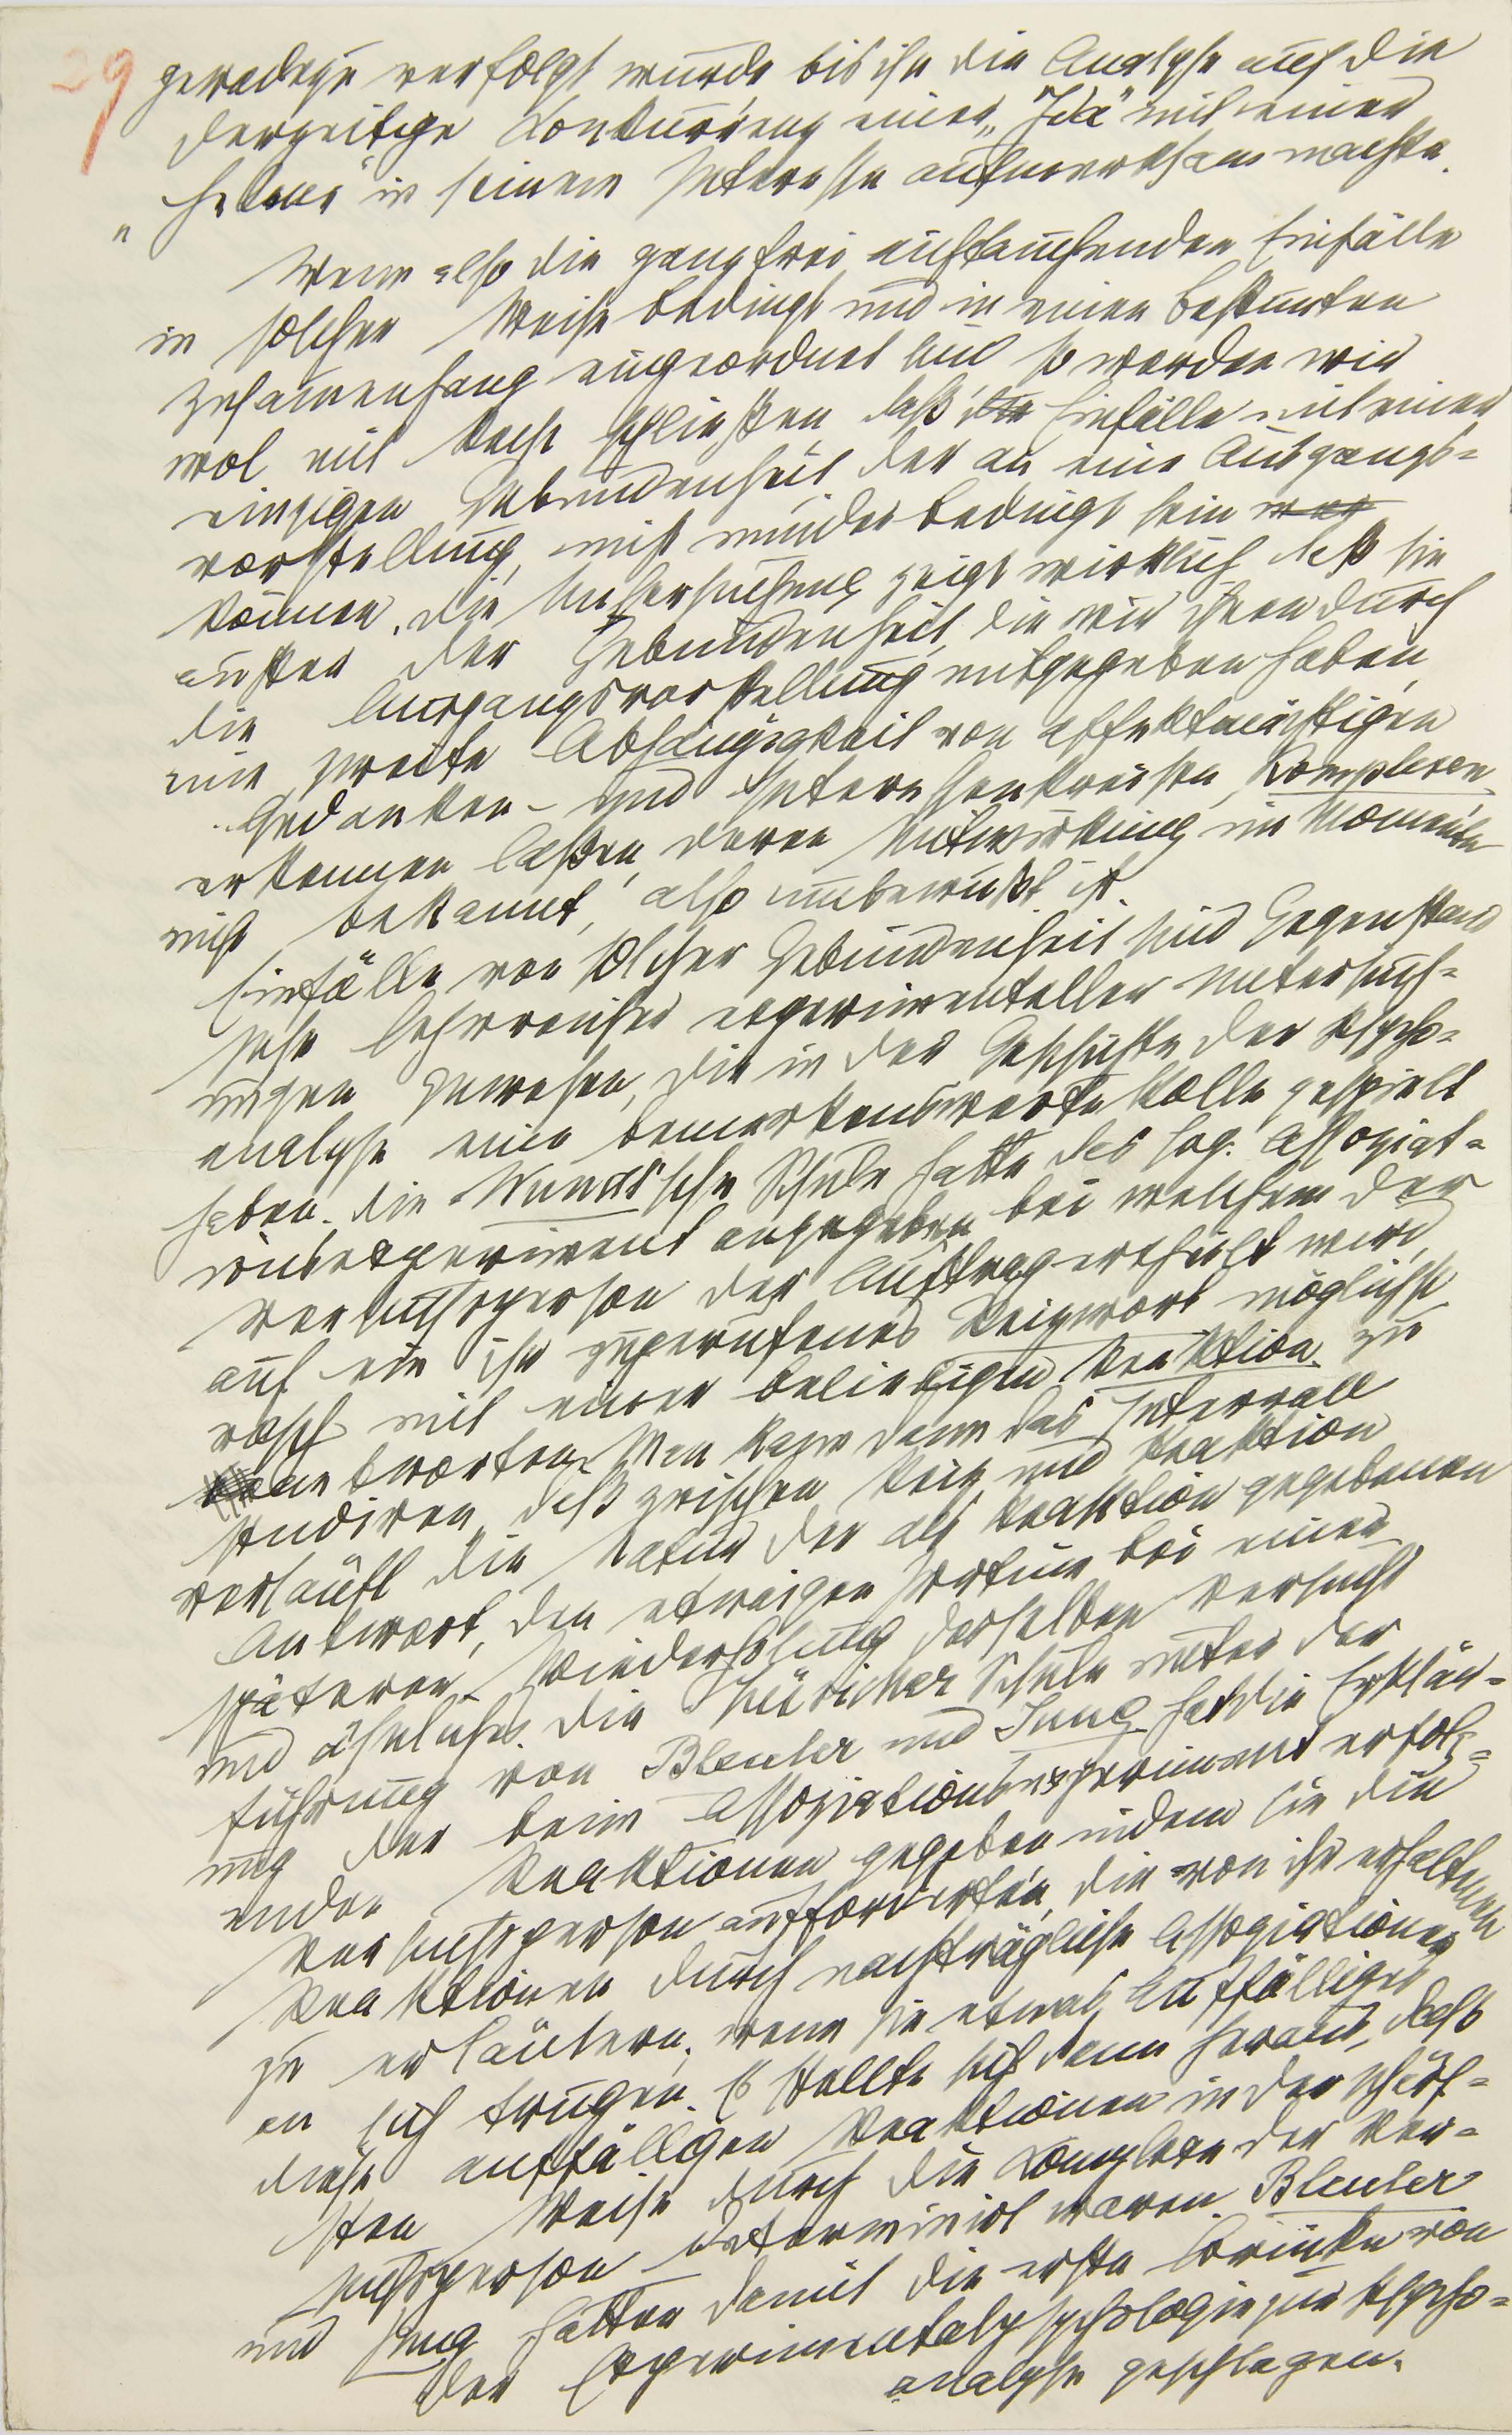 29
geradezu verfolgt wurde bis ihn die Analyse auf die
derzeitige Konkurrenz einer „Ida" mit einer
„Helene" in seinem Interesse aufmerksam machte.
Wenn also die ganz frei auftauchenden Einfälle
in solcher Weise bedingt und in einen bestimmten
Zusammenhang eingeordnet sind so werden wir
wol mit Recht schließen daß die Einfälle mit einer
einzigen Gebundenheit der an eine Ausgangs=
vorstellung, nicht minder bedingt sein
können. Die Untersuchung zeigt wirklich daß sie
außer der Gebundenheit, die wir ihnen durch
die Ausgangsvorstellung mitgegeben haben,
eine zweite Abhängigkeit von affektmächtigen
Gedanken- und Interessenkreisen, Komplexen,
erkennen laßen, deren Mitwirkung im Momente
nicht bekannt, also unbewußt ist.
Einfälle von solcher Gebundenheit sind Gegenstand
sehr lehrreicher experimenteller Untersuch=
ungen gewesen, die in der Geschichte der Psycho=
analyse eine bemerkenswerte Rolle gespielt
haben. Die Wundt'sche Schule hatte das sog. Assoziat=
ionsexperiment angegeben bei welchem der
Versuchsperson der Auftrag erteilt wird,
auf ein ihr zugerufenes Reizwort möglichst
rasch mit einer beliebigen Reaktion zu
antworten. Man kann dann das Intervall
studiren, daß zwischen Reiz und Reaktion
verläuft die Natur der als Reaktion gegebenen
Antwort, den etwaigen Irrtum bei einer
späteren Wiederholung desselben Versuchs
und ähnliches. Die Züricher Schule unter der
Führung von Bleuler und Jung hat die Erklär=
ung der beim Assoziationsexperiment erfolg=
enden Reaktionen gegeben indem sie die
Versuchsperson aufforderten, die von ihr erhaltenen
Reaktionen durch nachträgliche Assoziationen
zu erläutern, wenn sie etwas Auffälliges
an sich trugen. Es stellte sich dann heraus, daß
diese auffälligen Reaktionen in der schärf=
sten Weise durch die Komplexe der Ver=
suchsperson determinirt waren. Bleuler
und Jung hatten damit die erste Brücke von
der Experimentalpsychologie zur Psycho=
analyse geschlagen.